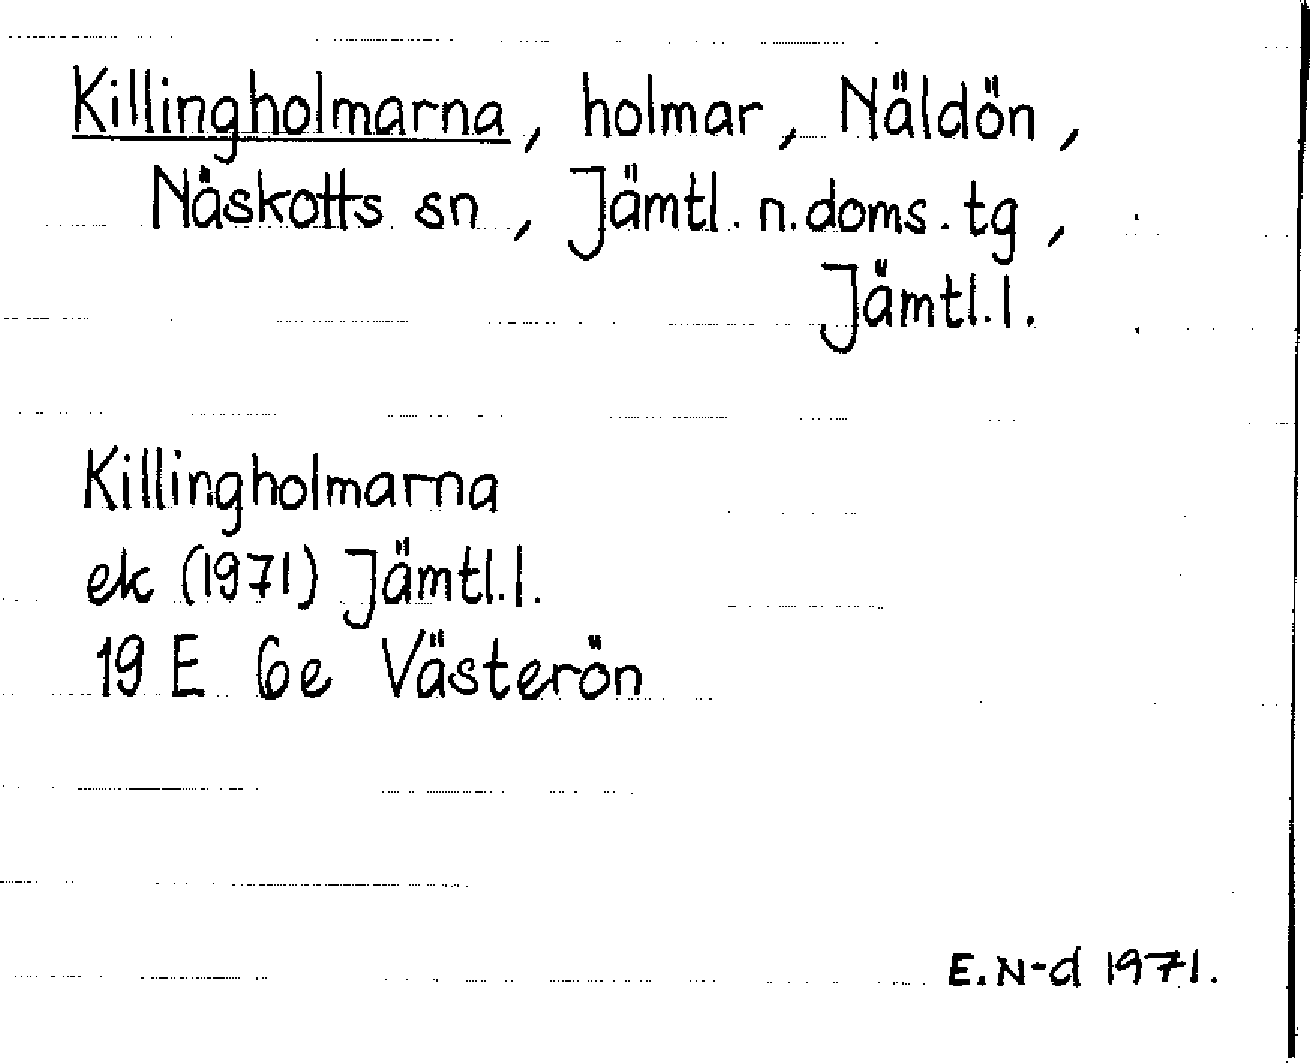 Killingholmarna, holmar, Näldön,
Näskotts sn, Jämtl. n. doms. tg,
Jämtl. l.
Killingholmarna
ek (1971) Jämtl. l.
19 E 6e Västerön
E. N-d 1971.